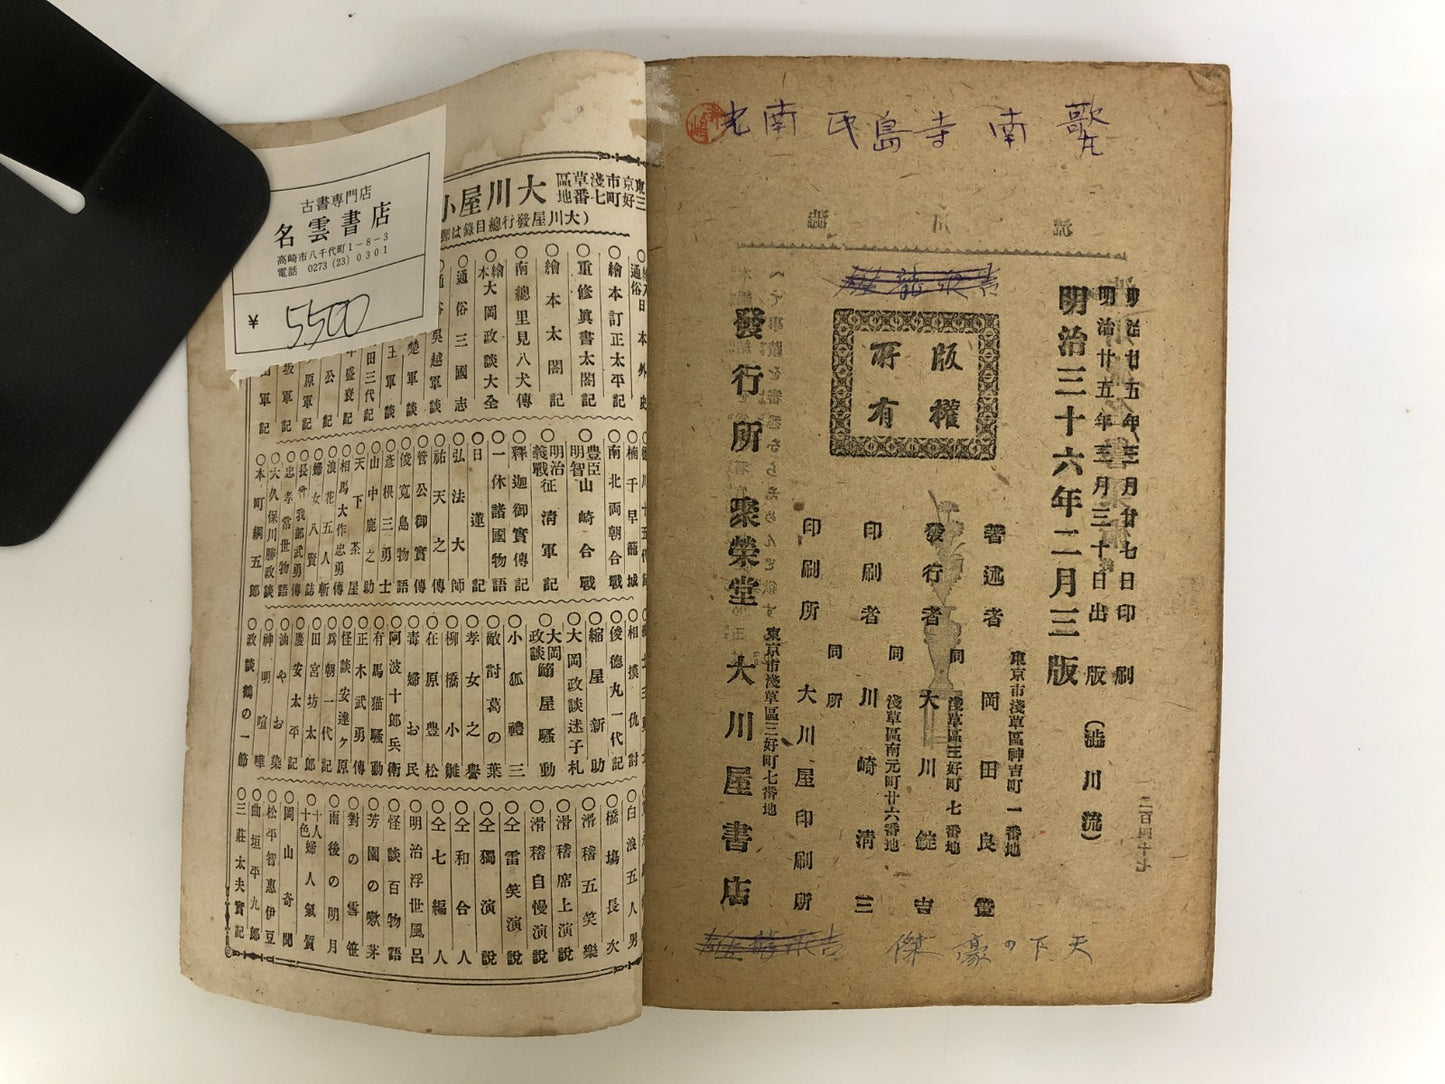 明治廿五年三月廿七日印刷
明治廿五年三月三十日出版
明治三十六年二月三版
(澁川流)
版權所有
東京市淺草區神吉町一番地
著述者 岡田良
同 淺草區三好町七番地
發行者 大川錠吉
同 淺草區南元町廿六番地
印刷者 川崎清三
同所
印刷所 大川屋印刷所
東京市淺草區三好町七番地
發行所 聚榮堂 大川屋書店
天下の豪傑
東京市淺草區三好町七番地 大川屋
(大川屋發行總目錄は郵
○繪本訂正太平記
○重修眞書太閤記
○繪本太閤記
○南總里見八犬傳
○繪本大岡政談大全
○通俗三國志
○楠千早籠城
○南北両朝合戰
○豊臣明智山崎合戰
○明治義戰征淸軍記
○釋迦御實傳記
○一休諸國物語
○日蓮記
○弘法大師
○祐天之傳
○菅公御實傳
○俊寛島物語
○彥根三勇士
○山中鹿之助
○天下茶屋
○相馬大作忠勇傳
○浪花五人斬
○蟒女八賢誌
○長曾我部武勇傳
○忠孝常世物語
○大久保川勝政談
○本町綱五郎
○相撲仇討
○俊德丸一代記
○縮屋新助
○大岡政談迷子札
○大岡政談鰯屋騷動
○小狐禮三
○敵討葛の葉
○孝女之譽
○柳橋小雛
○在原豊松
○毒婦お民
○阿波十郎兵衛
○有馬猫騷動
○正木武勇傳
○怪談安達ケ原
○爲朝一代記
○田宮坊太郎
○慶安太平記
○油やお染
○神明喧嘩
○政談鶴の一節
○白浪五人男
○橋場長次
○滑稽五笑樂
○滑稽席上演說
○滑稽自慢演說
○仝雷笑演說
○仝獨演說
○仝和合人
○仝七編人
○明治浮世風呂
○怪談百物語
○芳園の嫩茅
○對の雪笹
○雨後の明月
○十人十色婦人氣質
○岡山奇聞
○松平智惠伊豆
○曲垣平九郎
○三莊太夫實記
古書専門店
名雲書店
高崎市八千代町1-8-3
電話 0273(23)0301
¥ 5500